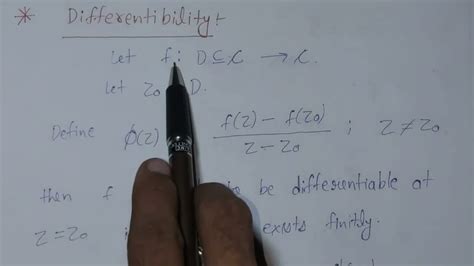 * Differentibility:-
Let f: D ⊆ ℂ → ℂ.
Let z₀ D.
Define φ(z) f(z) - f(z₀) / z - z₀ ; z ≠ z₀
then f to be differentiable at
z = z₀ exists finitly.